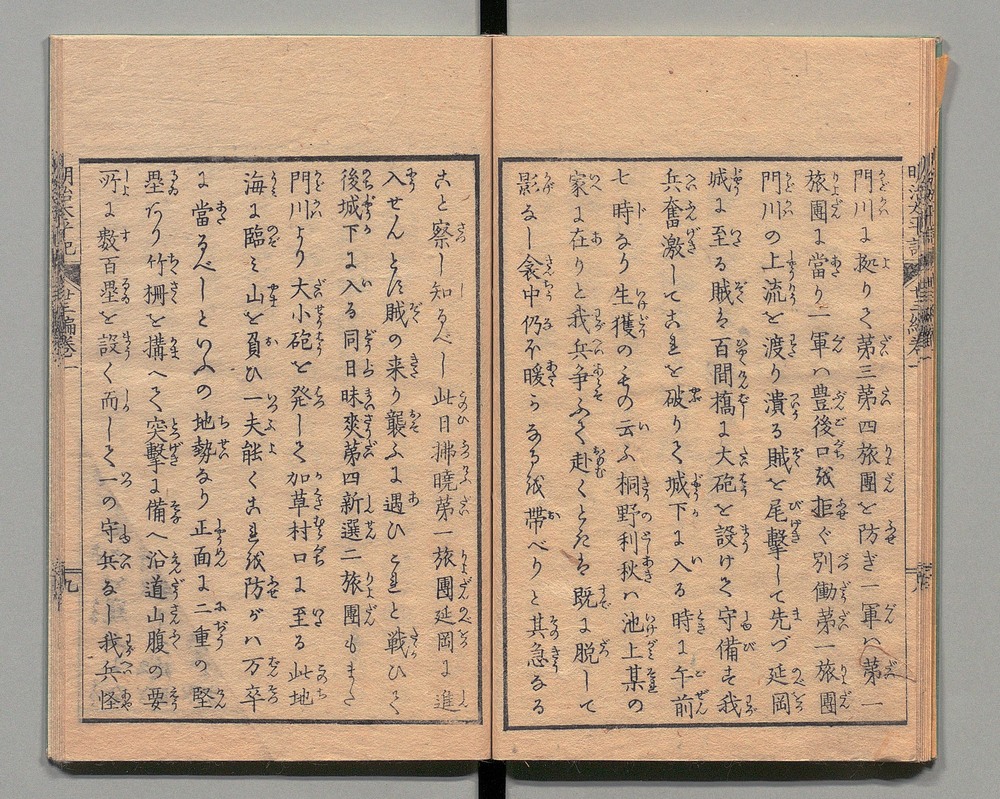 門川に拠りて第三第四旅團を防ぎ一軍ハ第一
旅團に當り一軍ハ豊後口を拒ぐ別働第一旅團
門川の上流を渡り潰る賊を尾撃して先づ延岡
城に至る賊百間橋に大砲を設けて守備す我
兵奮激して之を破りて城下に入る時に午前
七時なり生獲のもの云ふ桐野利秋ハ池上某の
家に在りと我兵争ふて赴くとき既に脱して
影なし衾中仍ほ暖らなるを帯べりと其急なる
こと察し知るべし此日拂曉第一旅團延岡に進
入せんとき賊の来り襲ふに遇ひこれと戦ひて
後城下に入る同日昧爽第四新選二旅團もまた
門川より大小砲を発して加草村口に至る此地
海に臨ミ山を負ひ一夫能くこれを防がハ万卒
に當るべしといふの地勢なり正面に二重の堅
塁あり竹柵を搆へて突撃に備へ沿道山腹の要
所に数百塁を設く而して一の守兵なし我兵怪
明治太平記
廿三編巻一
九